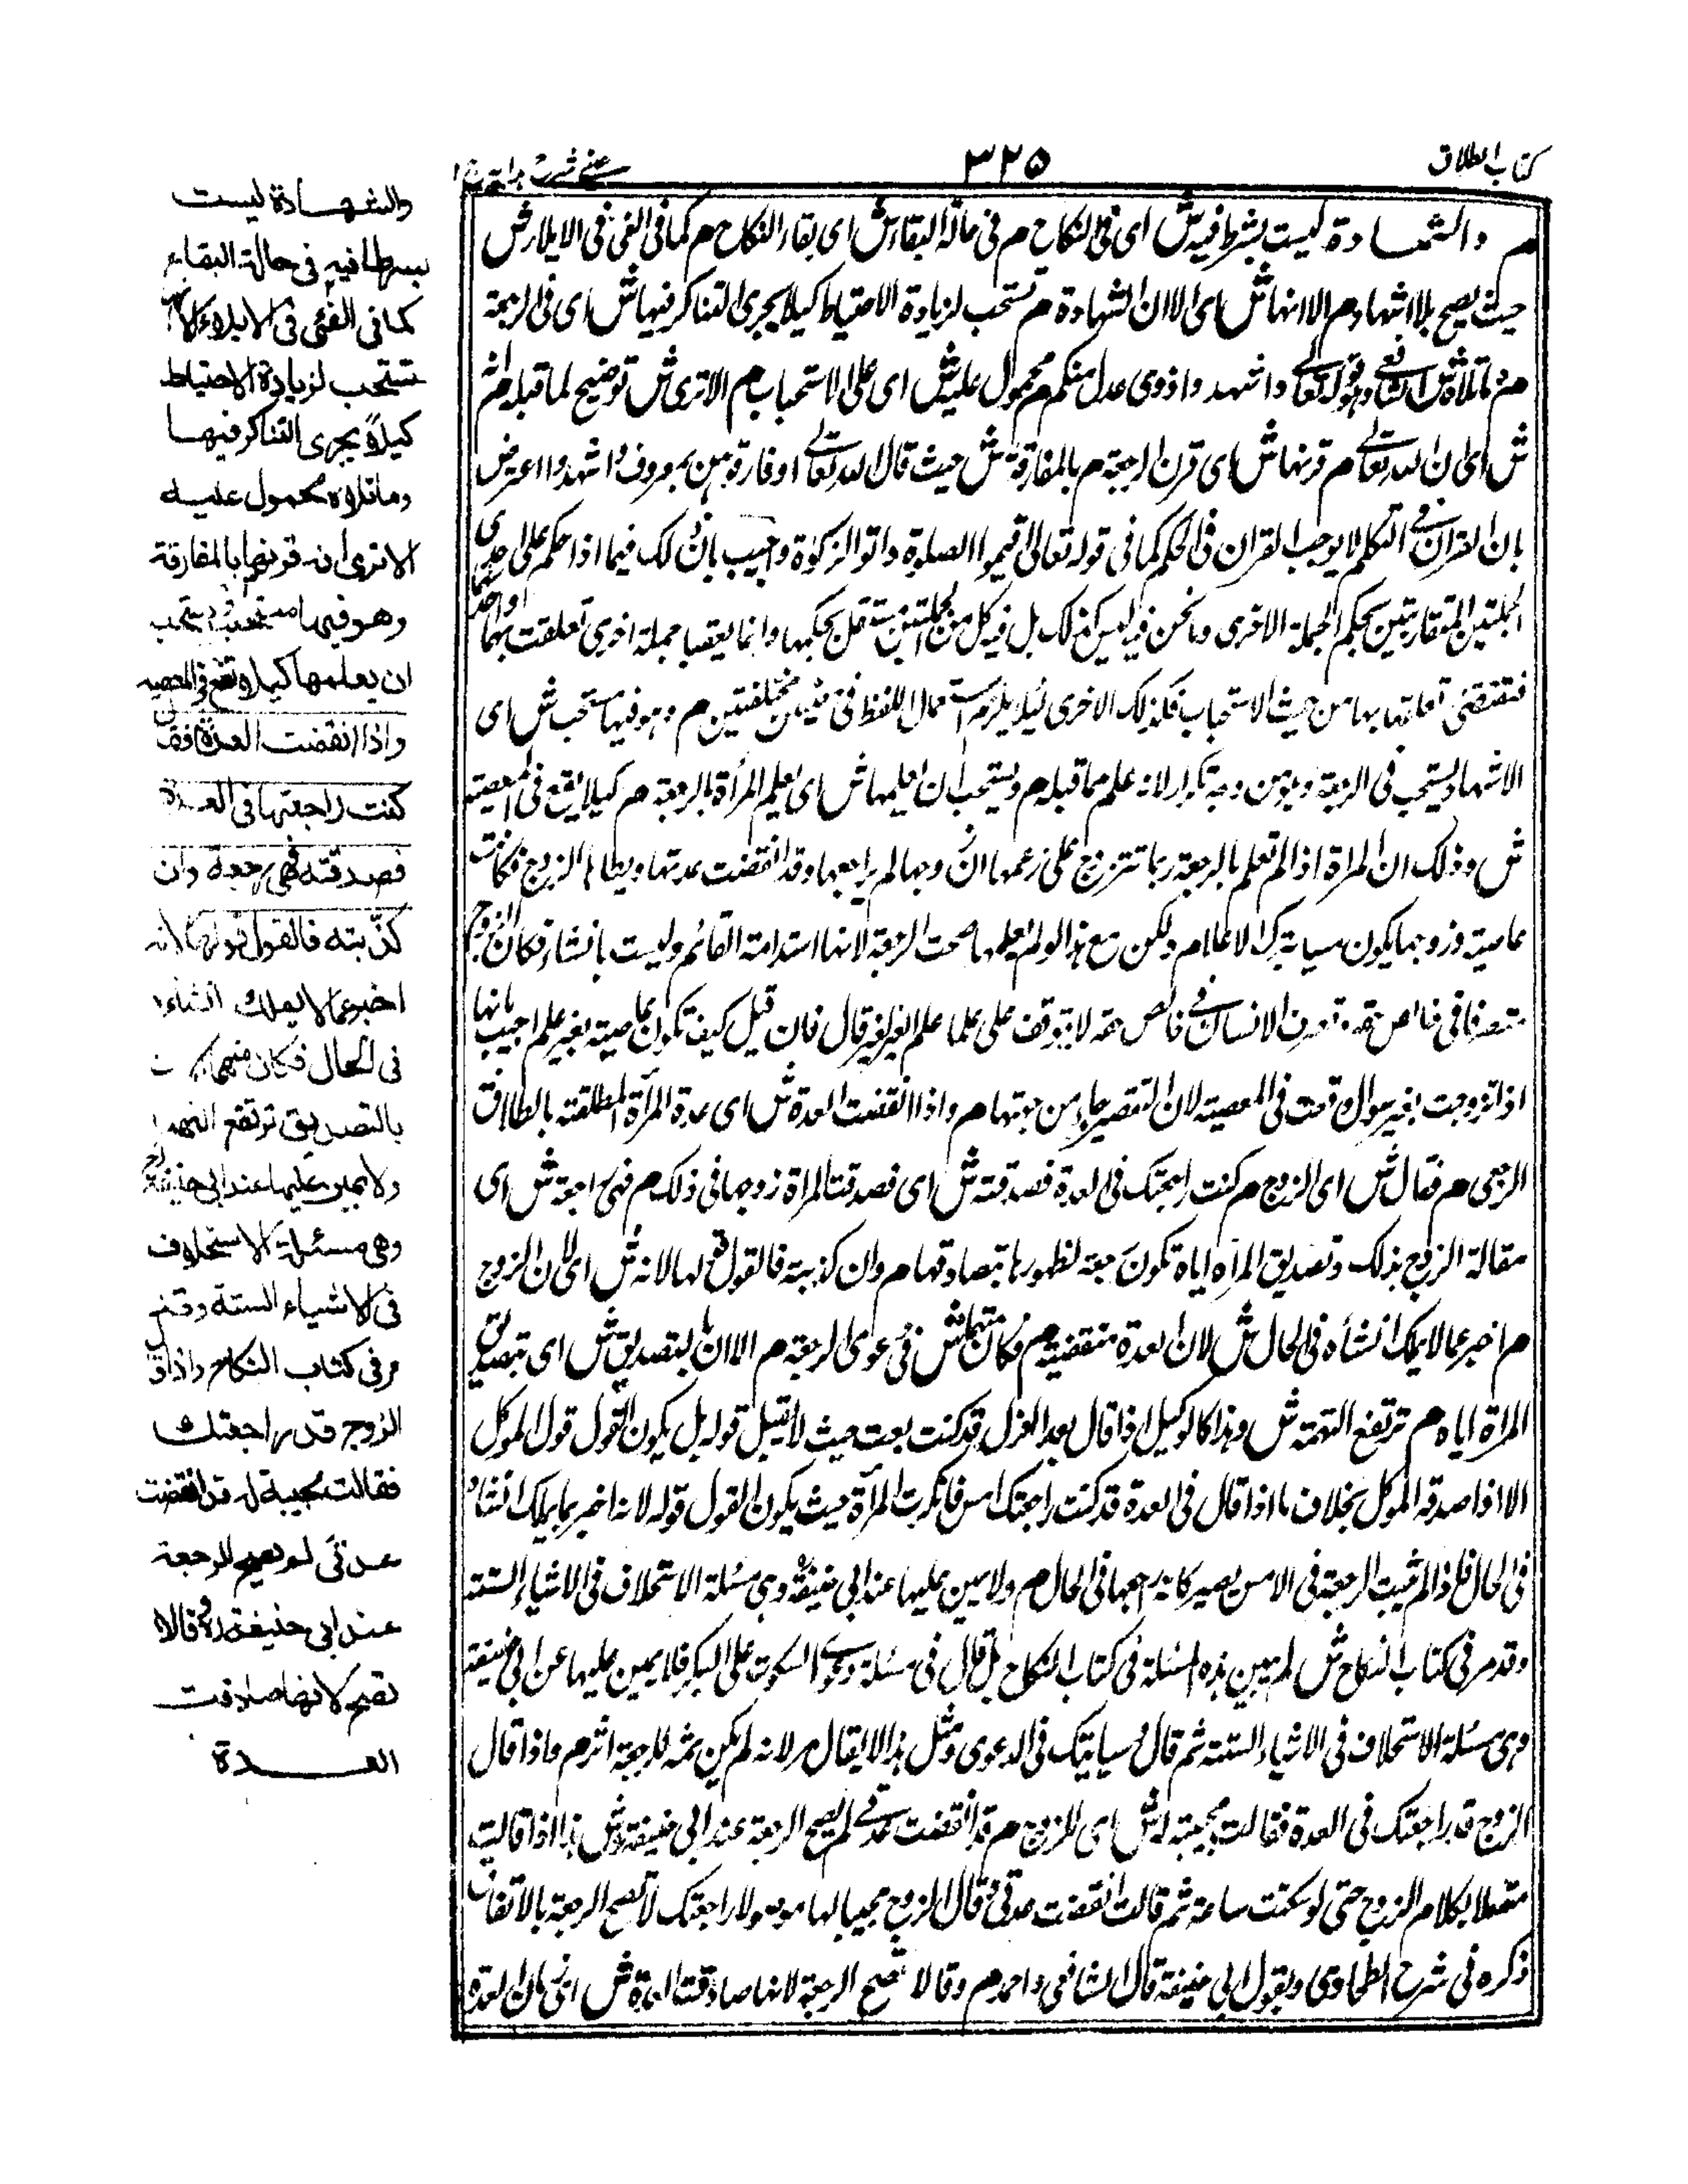 كتاب الطلاق
٣٢٥
عينى شرح هداية
م والشهادة ليست بشرط فيه ش اى فى النكاح م فى حالة البقاء ش اى بقاء النكاح م كما فى الفئ فى الايلاء ش
حيث يصح بلا اشهاد م الا انها ش اى الا ان الشهادة م تستحب لزيادة الاحتياط كيلا يجرى التناكر فيها ش اى فى الرجعة
م وما تلاه ش الشافعى وهو قوله تعالى واشهدوا ذوى عدل منكم م محمول عليه ش اى على الاستحباب م الا ترى ش توضيح لما قبله م انه
ش اى ان الله تعالى م قرنها ش اى قرن الرجعة م بالمفارقة ش حيث قال الله تعالى او فارقوهن بمعروف واشهدوا اعترض
بان القران فى التكلم لا يوجب القران فى الحكم كما فى قوله تعالى اقيموا الصلوة واتوا الزكوة واجيب بان ذلك فيما اذا حكم على احدى
الجملتين المتقارنتين بحكم الجملة الاخرى وما نحن فيه ليس كذلك بل فيه كل من الجملتين مستقلة بحكمها وانما يعقبها جملة اخرى تعلقت بهما
فتقتضى تعلقها بها من حيث الاستحباب فكذلك الاخرى لئلا يلزم استعمال اللفظ فى معنيين مختلفتين م وهو فيها مستحب ش اى
الاشهاد يستحب فى الرجعة وهو من وجه تكرار لانه علم مما قبله م ويستحب ان يعلمها ش اى يعلم المرأة بالرجعة م كيلا يقع فى المعصية
ش وذلك ان المراة اذا لم تعلم بالرجعة ربما تتزوج على زعمها ان زوجها لم يراجعها وقد انقضت عدتها ويطاها الزوج فكانت
عاصية وزوجها يكون مسيا بترك الاعلام ولكن مع هذا لو لم يعلمها صحت الرجعة لانها استدامة القائم وليست بانشاء فكان الزوج
متصرفا فى خالص حقه وتصرف الانسان فى خالص حقه لا يتوقف على علم الغير قال فان قيل كيف تكون عاصية بغير علم اجيب بانها
اذا تزوجت بغير سوال وقعت فى المعصية لان التقصير جاء من جهتها م واذا انقضت العدة ش اى عدة المرأة المطلقة بالطلاق
الرجعى م فقال ش اى الزوج م كنت راجعتك فى العدة فصدقته ش اى فصدقت المراة زوجها فى ذلك م فهى رجعة ش اى
مقالة الزوج بذلك وتصديق المراه اياه تكون رجعة لظهورها بتصادقهما م وان كذبته فالقول قولها لانه ش اى لان الزوج
م اخبر عما لا يملك انشاه فى الحال ش لان العدة منقضية م فكان متهما ش فى دعوى الرجعة م الا ان بالتصديق ش اى بتصديق
المراة اياه م ترتفع التهمة ش وهذا كالوكيل اذا قال بعد العزل قد كنت بعت حيث لا يقبل قوله بل يكون القول قول الموكل
الا اذا صدقه الموكل بخلاف ما اذا قال فى العدة قد كنت راجعتك امس فانكرت المرأة حيث يكون القول قوله لانه اخبر بما يملك انشاءه
فى الحال فاذا لم تثبت الرجعة فى الامس يصير كانه راجعها فى الحال م ولا يمين عليها عند ابى حنيفة وهى مسئلة الاستحلاف فى الاشياء الستة
وقد مر فى كتاب النكاح ش لم يبين هذه المسئلة فى كتاب النكاح بل قال فى مسئلة دعوى السكوت على البكر فلا يمين عليها عن ابى حنيفة
وهى مسئلة الاستحلاف فى الاشياء الستة ثم قال وسياتيك فى الدعوى ومثل هذا لا يقال مر لانه لم يكن ثمه للرجعة اثر م واذا قال
الزوج قد راجعتك فى العدة فقالت مجيبة له ش اى للزوج م قد انقضت عدتى لم يصح الرجعة عند ابى حنيفة ش هذا اذا قالت
متصلا بكلام الزوج حتى لو سكتت ساعة ثم قالت انقضت عدتى وقال الزوج مجيبا لها موصولا راجعتك لا تصح الرجعة بالاتفاق
ذكره فى شرح الطحاوى وبقول ابى حنيفة قال الشافعى واحمد م وقالا تصح الرجعة لانها صادقت العدة ش اى زمان العدة
والشهادة ليست
بشرط فيه فى حالة البقاء
كما فى الفئى فى الايلاء الا انها
تستحب لزيادة الاحتياط
كيلا يجرى التناكر فيها
وما تلاه محمول عليه
الا ترى انه قرنها بالمفارقة
وهو فيها مستحب ويستحب
ان يعلمها كيلا تقع فى المعصيه
واذا انقضت العدة فقال
كنت راجعتها فى العدة
فصدقته فهى رجعة وان
كذبته فالقول قولها لانه
اخبر عما لا يملك انشاءه
فى الحال فكان متهما الا ان
بالتصديق ترتفع التهمة
ولا يمين عليها عند ابى حنيفة رح
وهى مسئلة الاستحلاف
فى الاشياء الستة وقد
مر فى كتاب النكاح واذا قال
الزوج قد راجعتك
فقالت مجيبة له قد انقضت
عدتى لم تصح الرجعة
عند ابى حنيفة رح وقالا
تصح لانها صادفت
العدة